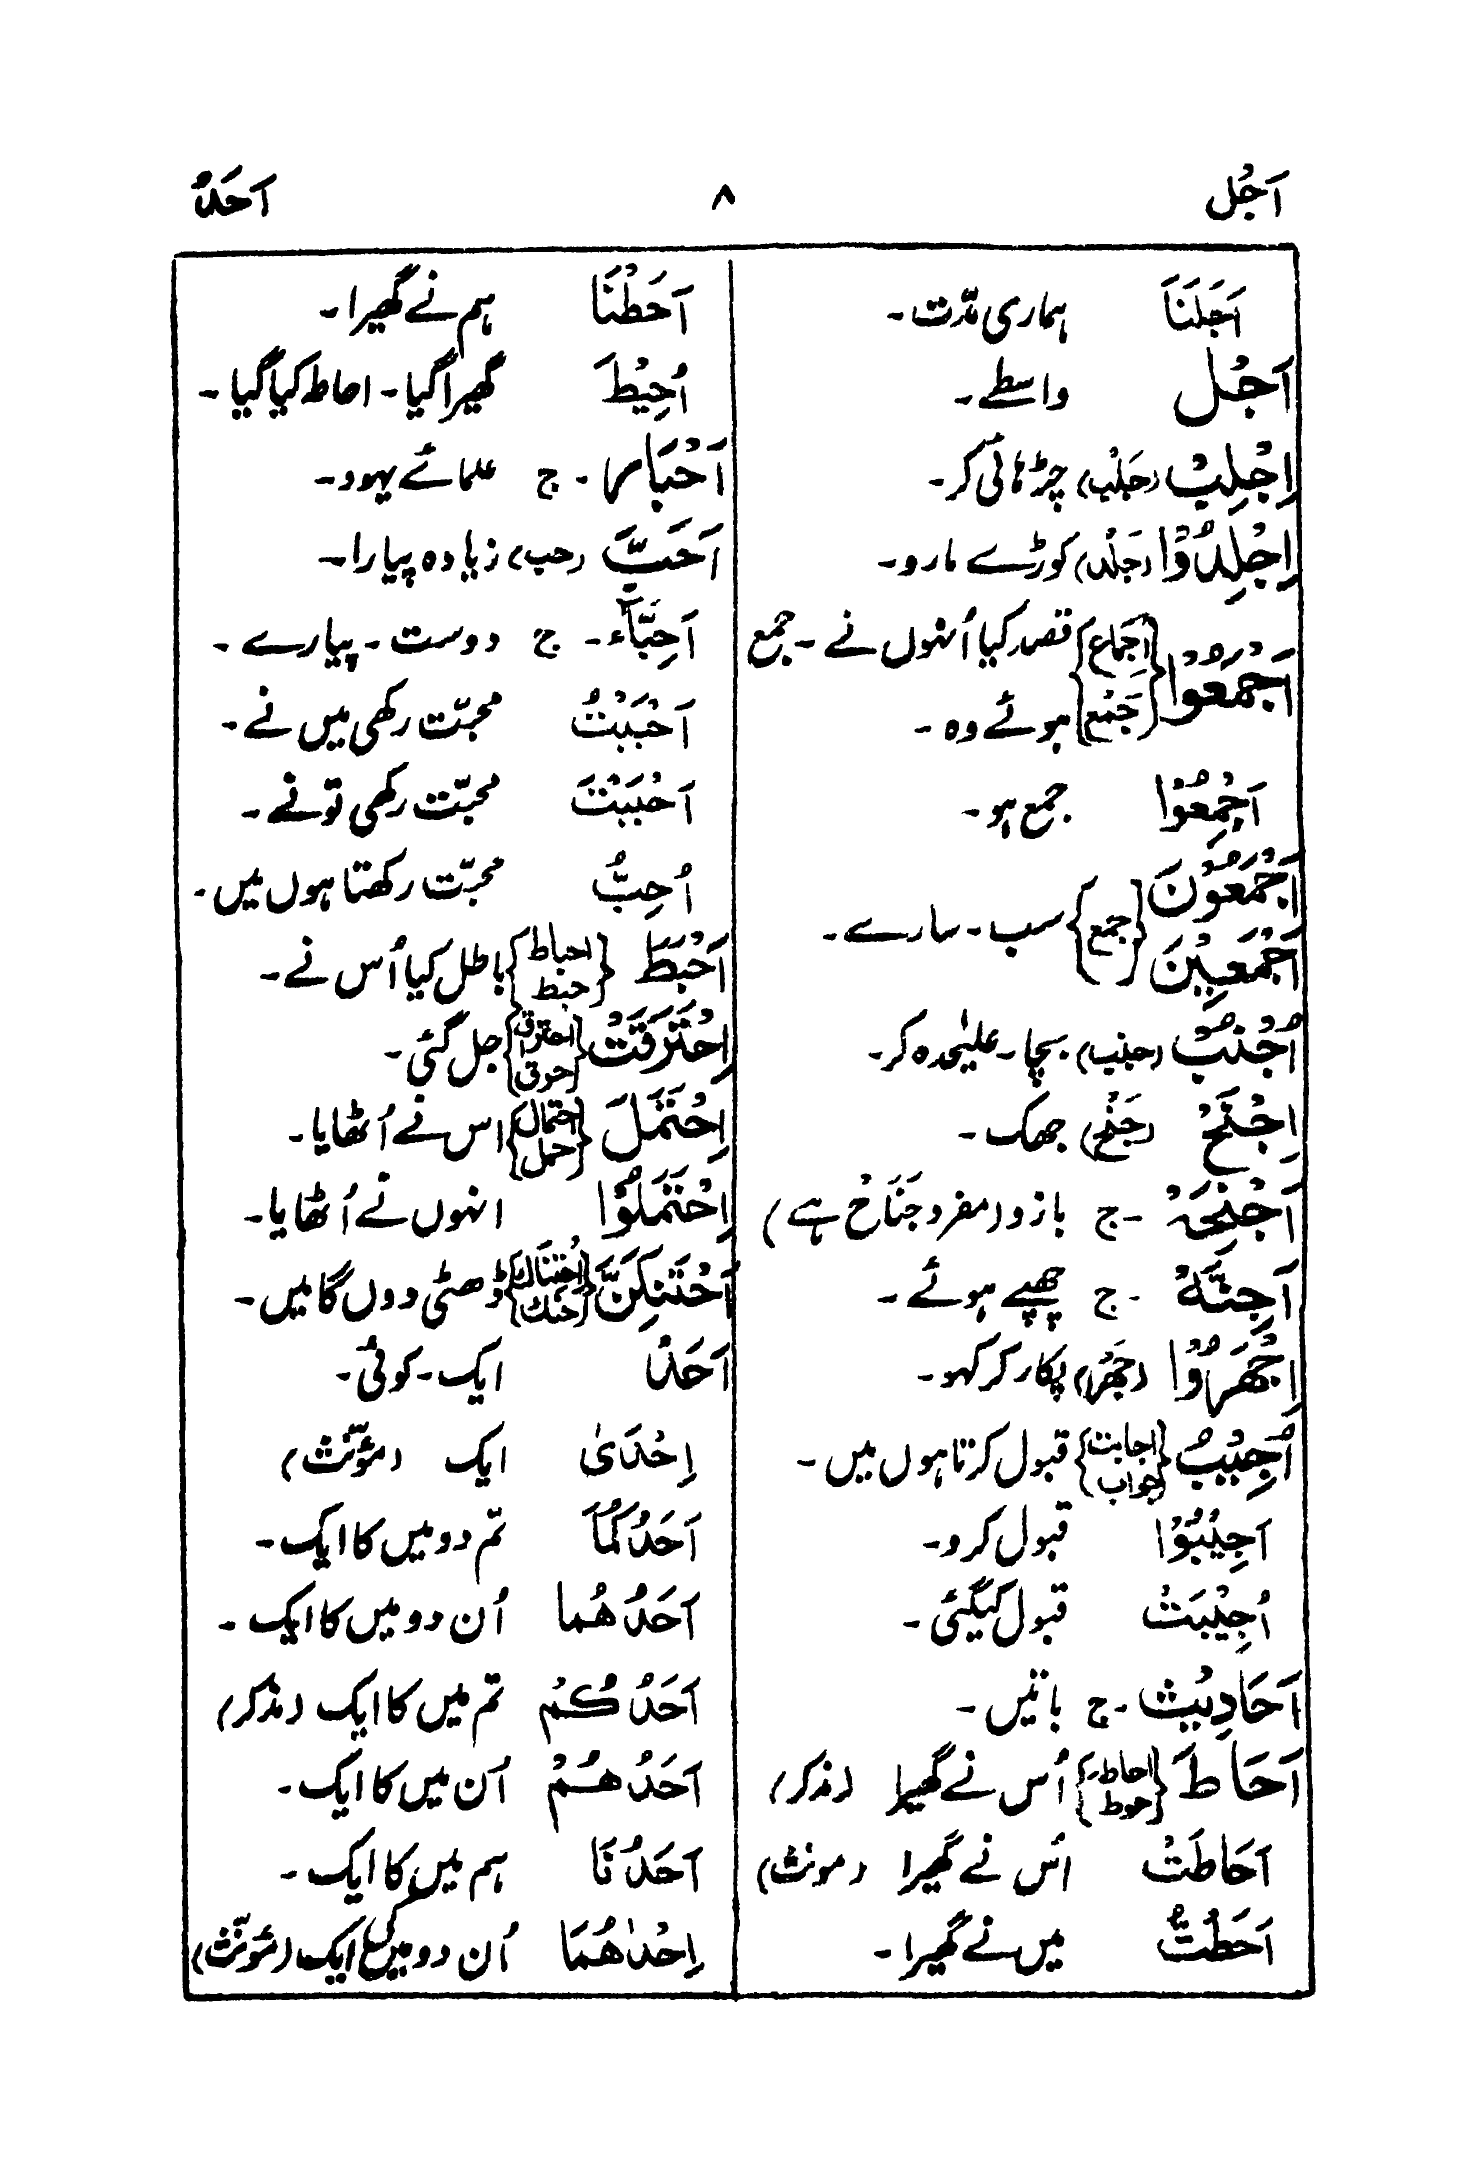 اَجُل ۸ اَحَدٌ
اَجَلَنَا ہماری مدّت۔
اَجُل واسطے۔
اِجْلِبْ (جَلْب) چڑھائی کر۔
اِجْلِدُوْا (جَلْد) کوڑے مارو۔
اَجْمَعُوْا {اِجْمَاع جَمْع} قصد کیا اُنہوں نے۔ جمع
ہوئے وہ۔
اَجْمِعُوْا جمع ہو۔
اَجْمَعُوْنَ
اَجْمَعِيْنَ {جمع} سب۔ سارے۔
اُجْنُبْ (جنب) بچا۔ علیٰحدہ کر۔
اِجْنَحْ (جَنْح) جھک۔
اَجْنِحَۃٌ ۔ج بازو (مفرد جَنَاحٌ ہے)
اَجِنَّۃٌ ۔ج چھپے ہوئے۔
اِجْهَرُوْا (جَهْر) پکار کر کہو۔
اُجِيْبُ {اجابت جواب} قبول کرتا ہوں میں۔
اَجِيْبُوْا قبول کرو۔
اُجِيْبَتْ قبول کیگئی۔
اَحَادِيْث ۔ج باتیں۔
اَحَاطَ {احاطہ حوط} اُس نے گھیرا (مذکر)
اَحَاطَتْ اُس نے گھیرا (مونث)
اَحَطْتُّ میں نے گھیرا۔
اَحَطْنَا ہم نے گھیرا۔
اُحِيْطَ گھیرا گیا۔ احاطہ کیا گیا۔
اَحْبَار ۔ ج علمائے یہود۔
اَحَبَّ (حب) زیادہ پیارا۔
اَحِبَّاء ۔ ج دوست۔ پیارے۔
اَحْبَبْتُ محبّت رکھی میں نے۔
اَحْبَبْتَ محبّت رکھی تو نے۔
اُحِبُّ محبّت رکھتا ہوں میں۔
اَحْبَطَ {احباط حبط} باطل کیا اُس نے۔
اِحْتَرَقَتْ {احتراق حرق} جل گئی۔
اِحْتَمَلَ {احتمال حمل} اس نے اُٹھایا۔
اِحْتَمَلُوْا انہوں نے اُٹھایا۔
اَحْتَنِكَنَّ {اِحْتِنَاك حنك} ڈھٹی دوں گا میں۔
اَحَدٌ ایک۔ کوئی۔
اِحْدَىٰ ایک (مؤنّث)
اَحَدُكُمَا تم دو میں کا ایک۔
اَحَدُهُما اُن دو میں کا ایک۔
اَحَدُكُمْ تم میں کا ایک (مذکر)
اَحَدُهُمْ اُن میں کا ایک۔
اَحَدُنَا ہم میں کا ایک۔
اِحْدٰهُمَا اُن دو میں کی ایک (مؤنّث)